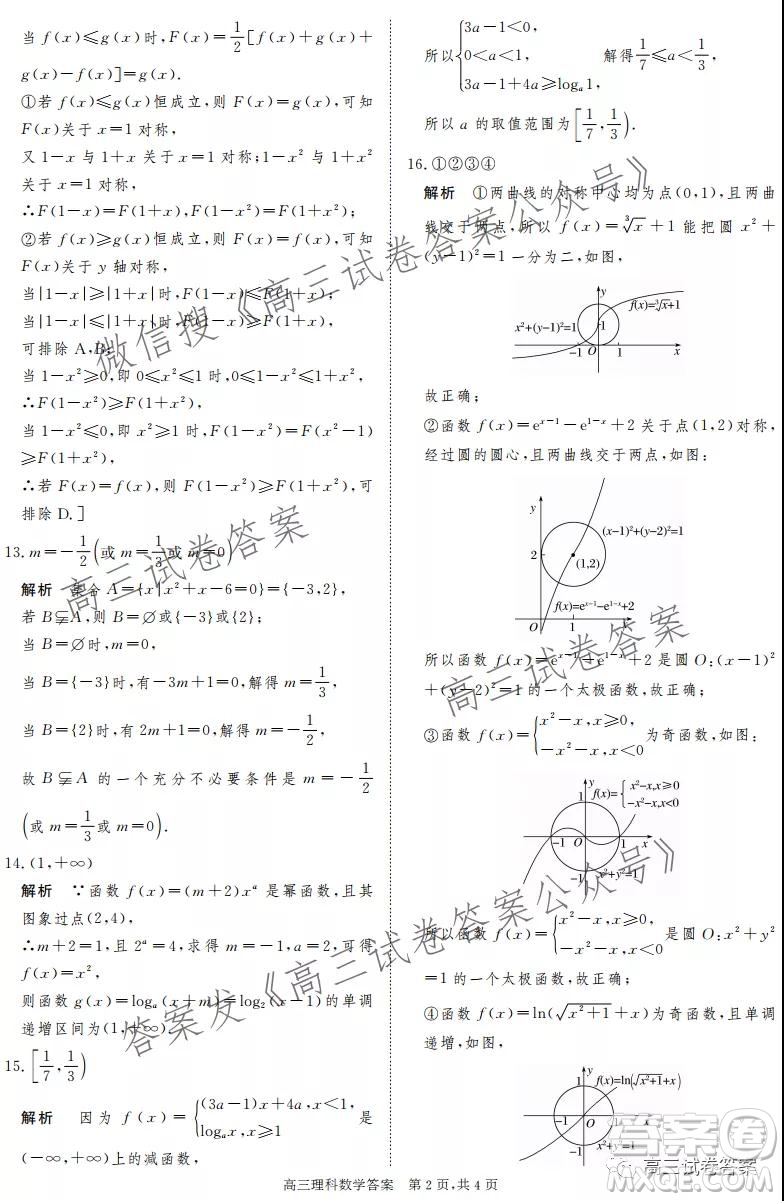 当 f(x)≤g(x)时,F(x)=1/2[f(x)+g(x)+
g(x)-f(x)]=g(x).
①若 f(x)≤g(x)恒成立,则 F(x)=g(x),可知
F(x)关于 x=1 对称,
又 1-x 与 1+x 关于 x=1 对称;1-x² 与 1+x²
关于 x=1 对称,
∴F(1-x)=F(1+x),F(1-x²)=F(1+x²);
②若 f(x)≥g(x)恒成立,则 F(x)=f(x),可知
F(x)关于 y 轴对称,
当|1-x|≥|1+x|时,F(1-x)≤F(1+x);
当|1-x|≤|1+x|时,F(1-x)≥F(1+x),
可排除 A,B;
当 1-x²≥0,即 0≤x²≤1 时,0≤1-x²≤1+x²,
∴F(1-x²)≥F(1+x²),
当 1-x²≤0,即 x²≥1 时,F(1-x²)=F(x²-1)
≥F(1+x²),
∴若 F(x)=f(x),则 F(1-x²)≥F(1+x²),可
排除 D.]
13. m=-1/2(或 m=1/3或 m=0)
解析 集合 A={x|x²+x-6=0}={-3,2},
若 B⫋A,则 B=∅或{-3}或{2};
当 B=∅时,m=0;
当 B={-3}时,有-3m+1=0,解得 m=1/3,
当 B={2}时,有 2m+1=0,解得 m=-1/2,
故 B⫋A 的一个充分不必要条件是 m=-1/2
(或 m=1/3或 m=0).
14. (1,+∞)
解析 ∵函数 f(x)=(m+2)xᵃ 是幂函数,且其
图象过点(2,4),
∴m+2=1,且 2ᵃ=4,求得 m=-1,a=2,可得
f(x)=x²,
则函数 g(x)=logₐ(x+m)=log₂(x-1)的单调
递增区间为(1,+∞).
15. [1/7,1/3)
解析 因为 f(x)={(3a-1)x+4a,x<1, 是
logₐx,x≥1
(-∞,+∞)上的减函数,
所以{3a-1<0,
0<a<1, 解得1/7≤a<1/3,
3a-1+4a≥logₐ1,
所以 a 的取值范围为[1/7,1/3).
16. ①②③④
解析 ①两曲线的对称中心均为点(0,1),且两曲
线交于两点,所以 f(x)=∛x+1 能把圆 x²+
(y-1)²=1 一分为二,如图,
y
f(x)=∛x+1
x²+(y-1)²=1
1
-1 O 1 x
故正确;
②函数 f(x)=eˣ⁻¹-e¹⁻ˣ+2 关于点(1,2)对称,
经过圆的圆心,且两曲线交于两点,如图:
y
(x-1)²+(y-2)²=1
2
(1,2)
f(x)=eˣ⁻¹-e¹⁻ˣ+2
O 1 x
所以函数 f(x)=eˣ⁻¹+e¹⁻ˣ+2 是圆 O:(x-1)²
+(y-2)²=1 的一个太极函数,故正确;
③函数 f(x)={x²-x,x≥0, 为奇函数,如图:
-x²-x,x<0
y
1
f(x)={x²-x,x≥0
-x²-x,x<0
-1 O 1 x
-1
x²+y²=1
所以函数 f(x)={x²-x,x≥0, 是圆 O:x²+y²
-x²-x,x<0
=1 的一个太极函数,故正确;
④函数 f(x)=ln(√(x²+1)+x)为奇函数,且单调
递增,如图,
y
f(x)=ln(√(x²+1)+x)
1
-1 O 1 x
-1
高三理科数学答案 第 2 页,共 4 页
微信搜《高三试卷答案公众号》
高三试卷答案
高三试卷答案
答案发《高三试卷答案公众号》
答案卷
高三试卷答案